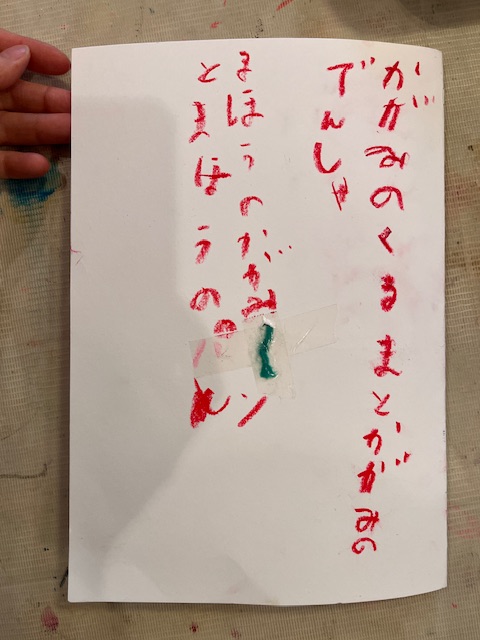 かがみのくるまとかがみの
でんしゃ
まほうのかがみ
とまほうの